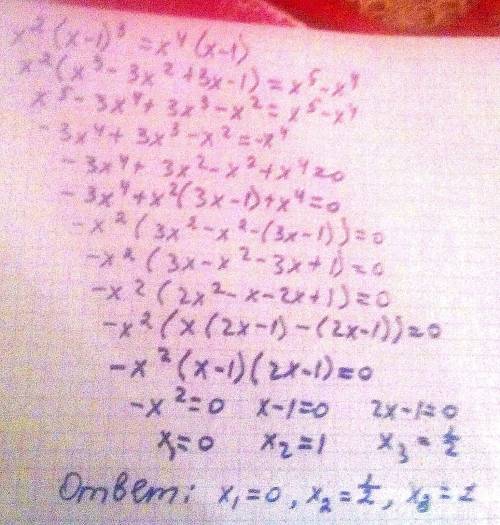 x² (x-1)³ = x⁴ (x-1)
x² (x³ - 3x² + 3x - 1) = x⁵ - x⁴
x⁵ - 3x⁴ + 3x³ - x² = x⁵ - x⁴
- 3x⁴ + 3x³ - x² = -x⁴
- 3x⁴ + 3x² - x² + x⁴ = 0
- 3x⁴ + x² (3x-1) + x⁴ = 0
- x² (3x² - x² - (3x-1)) = 0
-x² (3x - x² - 3x + 1) = 0
-x² (2x² - x - 2x + 1) = 0
-x² (x (2x-1) - (2x-1)) = 0
-x² (x-1) (2x-1) = 0
-x² = 0 x-1=0 2x-1=0
x₁=0 x₂=1 x₃ = ½
Ответ: x₁=0, x₂=½, x₃=1